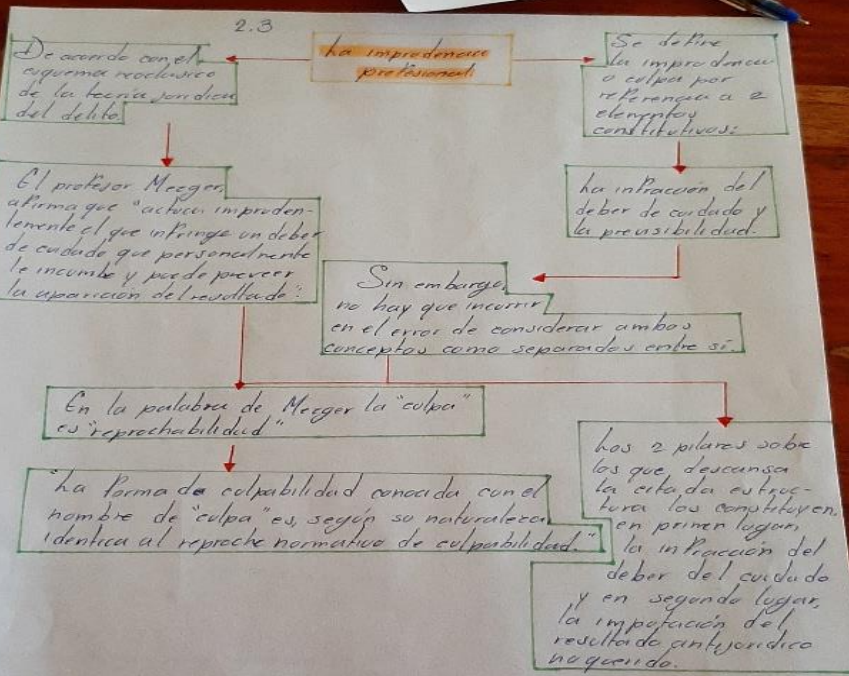 2.3
La imprudencia
profesional.
De acuerdo con el
esquema neoclásico
de la teoría juridica
del delito.
Se define
la imprudencia
o culpa por
referencia a 2
elementos
constitutivos:
El profesor Mezger,
afirma que "actúa impruden-
temente el que infringe un deber
de cuidado que personalmente
le incumbe y puede preveer
la aparición del resultado".
La infracción del
deber de cuidado y
la previsibilidad.
Sin embargo,
no hay que incurrir
en el error de considerar ambos
conceptos como separados entre sí.
En la palabra de Mezger la "culpa"
es "reprochabilidad"
"La forma de culpabilidad conocida con el
nombre de "culpa" es, según su naturaleza
identica al reproche normativo de culpabilidad."
Los 2 pilares sobre
los que, descansa
la citada estruc-
tura los constituyen,
en primer lugar,
la infracción del
deber del cuidado
y en segundo lugar,
la imputación del
resultado antijuridico
no querido.